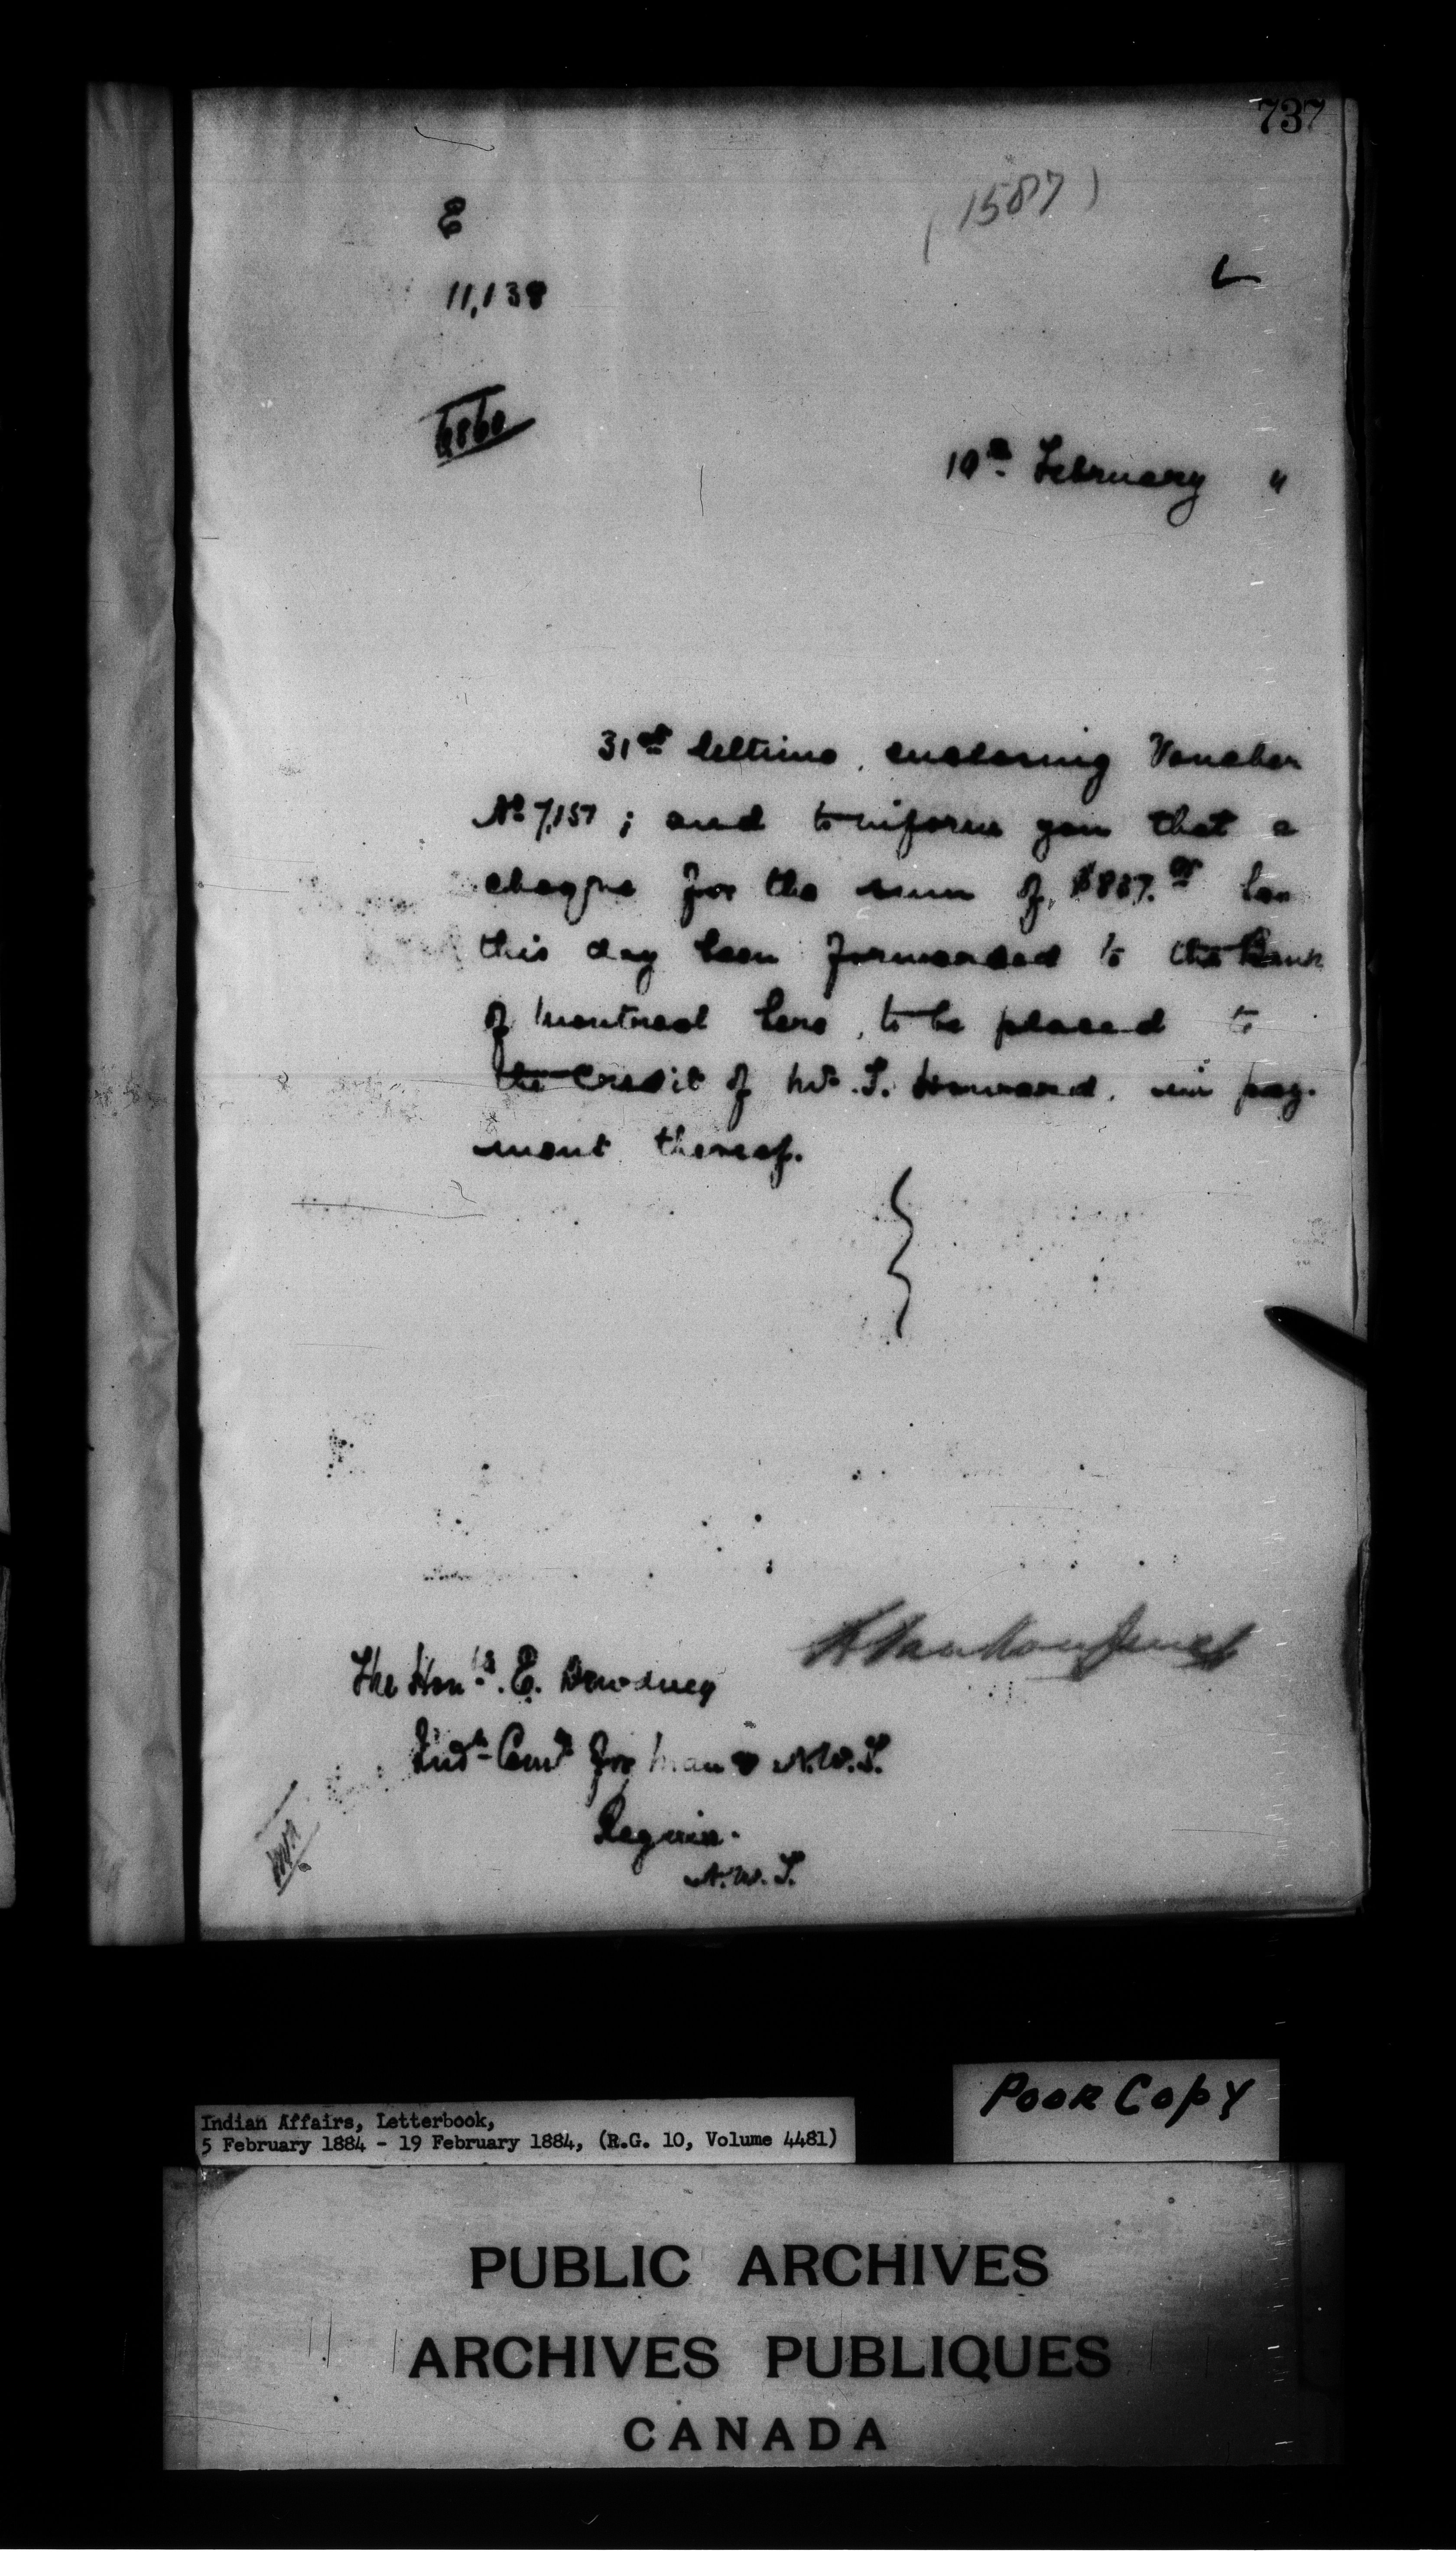 737
(1587)
E
11,138
6860
19th February "
31st Ultimo, enclosing Voucher
No 7,157 ; and to inform you that a
cheque for the sum of $887.00 has
this day been forwarded to the Bank
of Montreal here, to be placed to
the Credit of Mr. T. Howard, in pay-
ment thereof.
L. Vankoughnet
The Honble. E. Dewdney
Indn Comr for Man & N.W.T.
Regina.
N.W.T.
Poor Copy
Indian Affairs, Letterbook,
5 February 1884 - 19 February 1884, (R.G. 10, Volume 4481)
PUBLIC ARCHIVES
ARCHIVES PUBLIQUES
CANADA